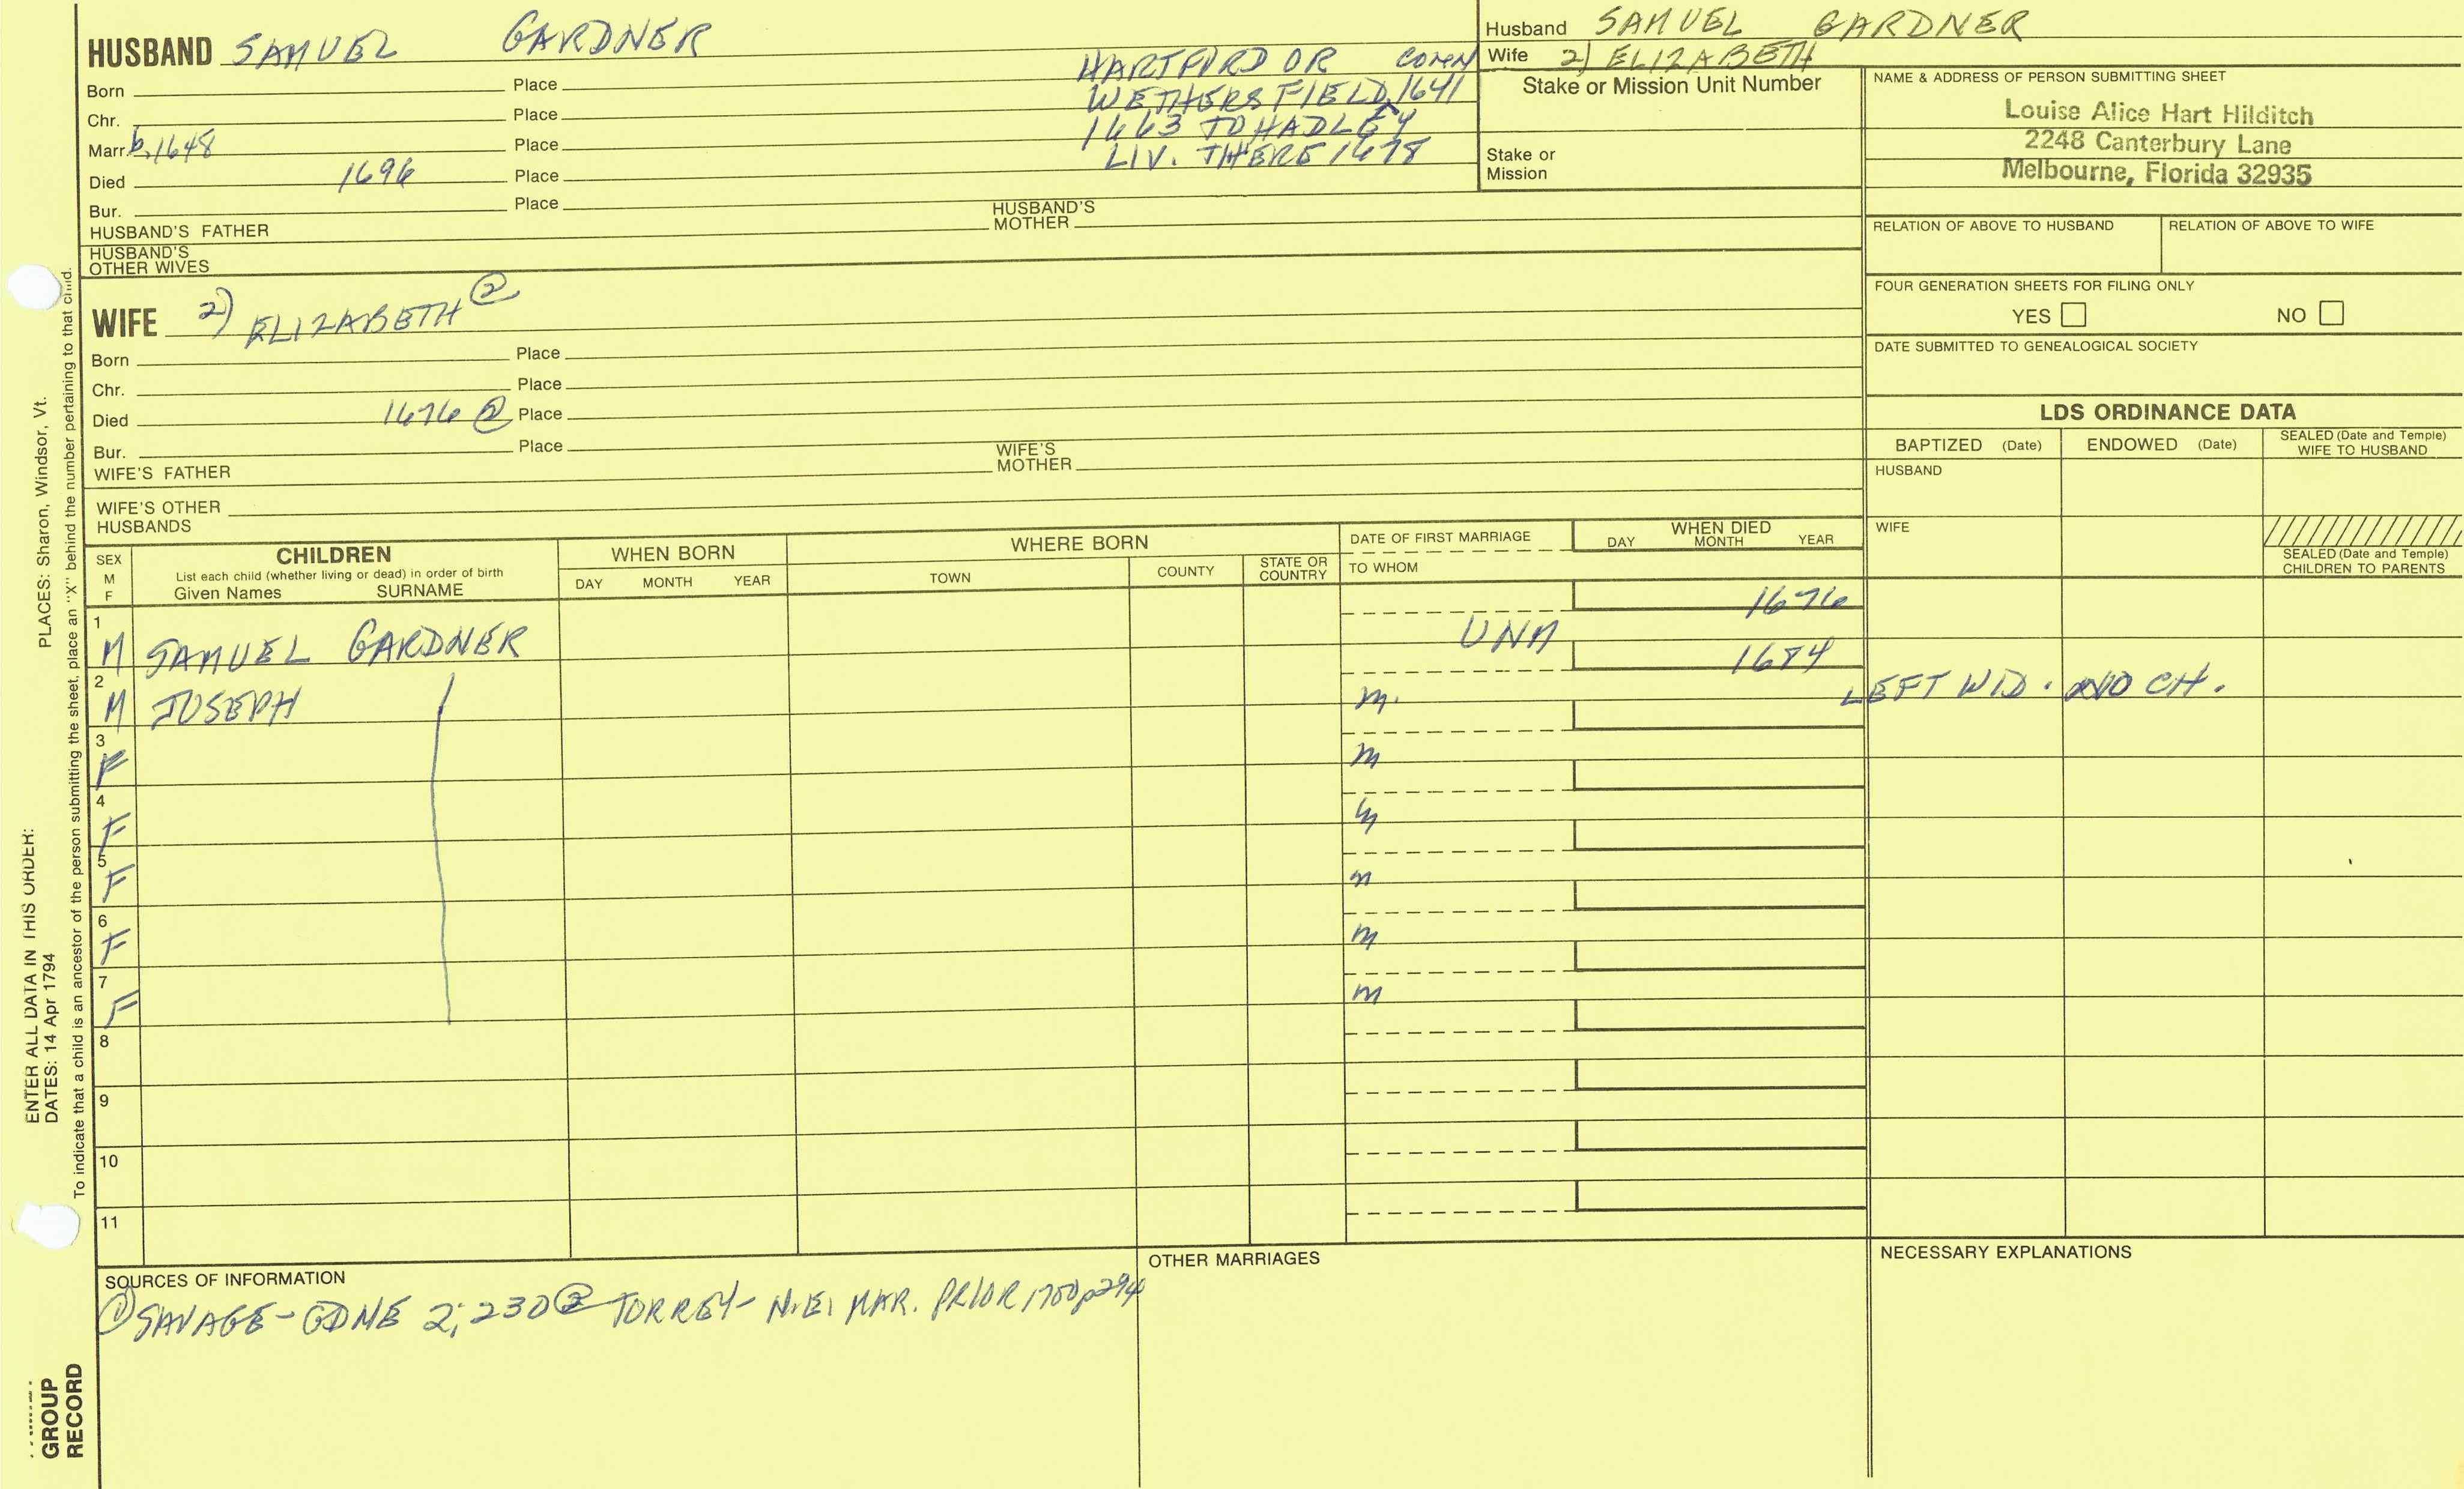 HUSBAND SAMUEL GARDNER
Born Place
Chr. Place
Marr. b. 1648 Place
Died 1696 Place
Bur. Place
HARTFORD OR CONN
WETHERSFIELD, 1641
1663 TO HADLEY
LIV. THERE 1678
HUSBAND'S FATHER
HUSBAND'S MOTHER
HUSBAND'S OTHER WIVES
Husband SAMUEL GARDNER
Wife 2) ELIZABETH
Stake or Mission Unit Number
Stake or
Mission
NAME & ADDRESS OF PERSON SUBMITTING SHEET
Louise Alice Hart Hilditch
2248 Canterbury Lane
Melbourne, Florida 32935
RELATION OF ABOVE TO HUSBAND RELATION OF ABOVE TO WIFE
FOUR GENERATION SHEETS FOR FILING ONLY
YES NO
DATE SUBMITTED TO GENEALOGICAL SOCIETY
WIFE 2) ELIZABETH ②
Born Place
Chr. Place
Died 1676 ② Place
Bur. Place
WIFE'S FATHER
WIFE'S MOTHER
WIFE'S OTHER HUSBANDS
LDS ORDINANCE DATA
BAPTIZED (Date) ENDOWED (Date) SEALED (Date and Temple) WIFE TO HUSBAND
HUSBAND
WIFE
SEALED (Date and Temple) CHILDREN TO PARENTS
SEX M F
CHILDREN
List each child (whether living or dead) in order of birth
Given Names SURNAME
WHEN BORN
DAY MONTH YEAR
WHERE BORN
TOWN COUNTY STATE OR COUNTRY
DATE OF FIRST MARRIAGE
TO WHOM
WHEN DIED
DAY MONTH YEAR
1 M SAMUEL GARDNER UNM 1676
2 M JOSEPH m. 1684 LEFT WID. NO CH.
3 F m
4 F m
5 F m
6 F m
7 F m
8
9
10
11
SOURCES OF INFORMATION
① SAVAGE - GDNE 2; 230 ② TORREY - N.E. MAR. PRIOR 1700 p294
OTHER MARRIAGES
NECESSARY EXPLANATIONS
PLACES: Sharon, Windsor, Vt.
ENTER ALL DATA IN THIS ORDER:
DATES: 14 Apr 1794
To indicate that a child is an ancestor of the person submitting the sheet, place an "X" behind the number pertaining to that child.
GROUP
RECORD